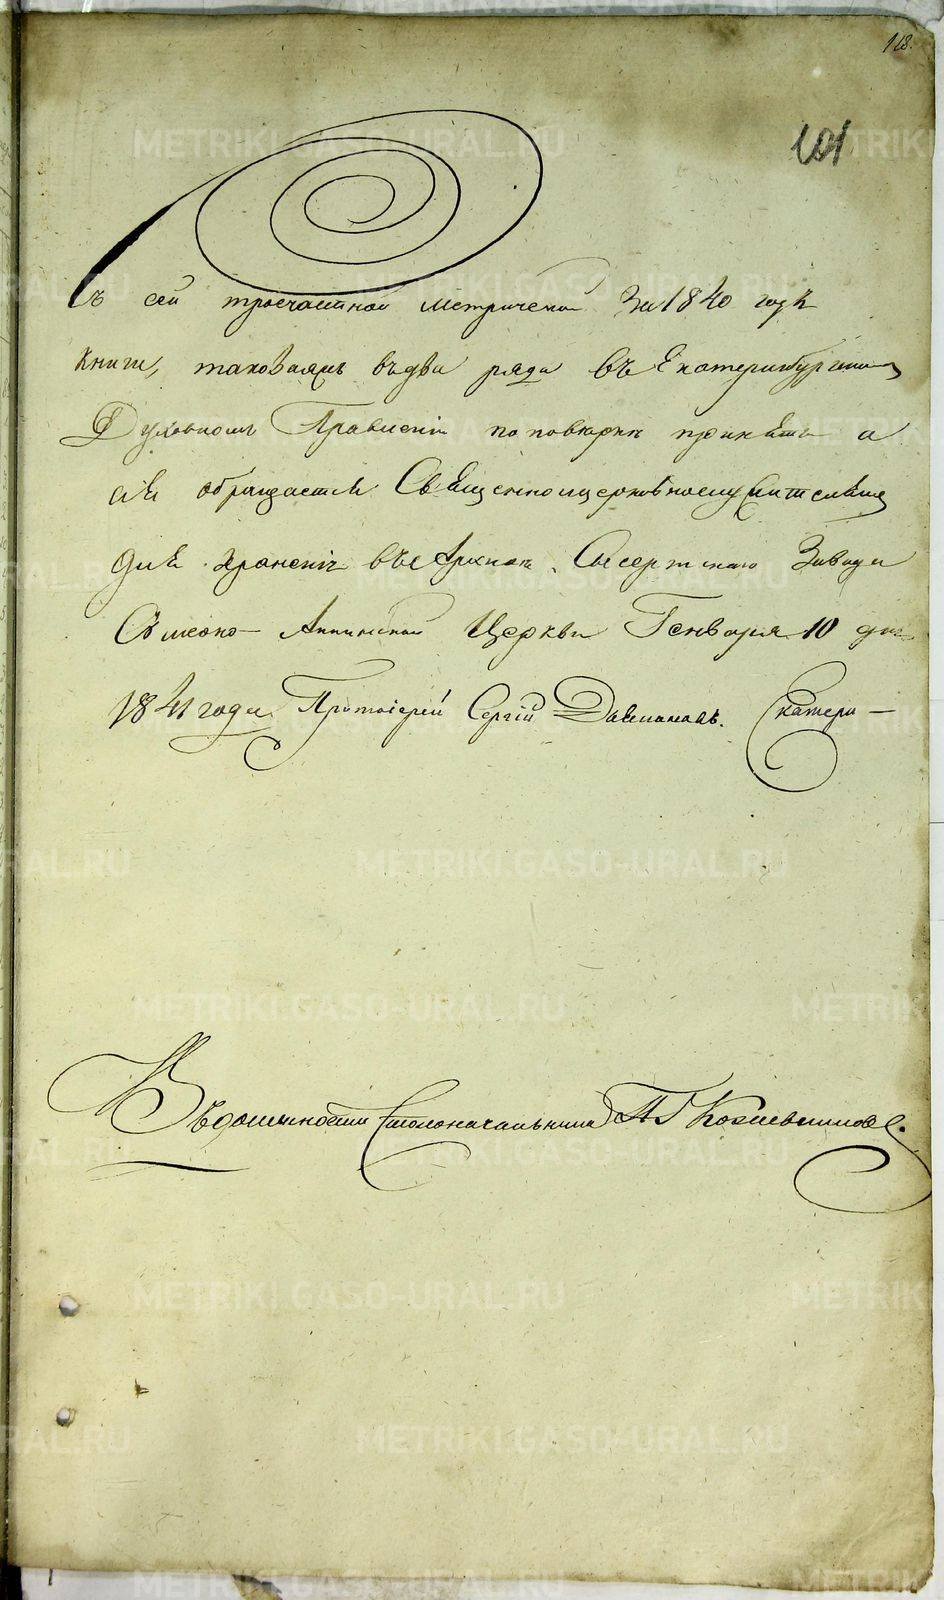 118.
101
Съ сей троечастной метрической за 1840 годъ
книги, таковаяжъ въ два ряда въ Екатеринбургскомъ
Духовномъ Правленіи по поверке принята а
сія обращается Священноцерковнослужителямъ
для храненія въ Архивѣ Сысертскаго Завода
Симеоно-Аннинской Церкви Генваря 10 дня
1841 года. Протоіерей Сергій Екатери-
Въ должности Столоначальника